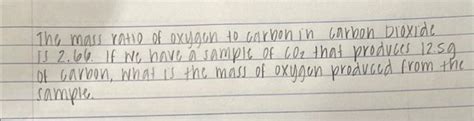 The mass ratio of oxygen to carbon in carbon Dioxide
is 2.66. If we have a sample of CO₂ that produces 12.5g
of carbon, what is the mass of oxygen produced from the
sample.